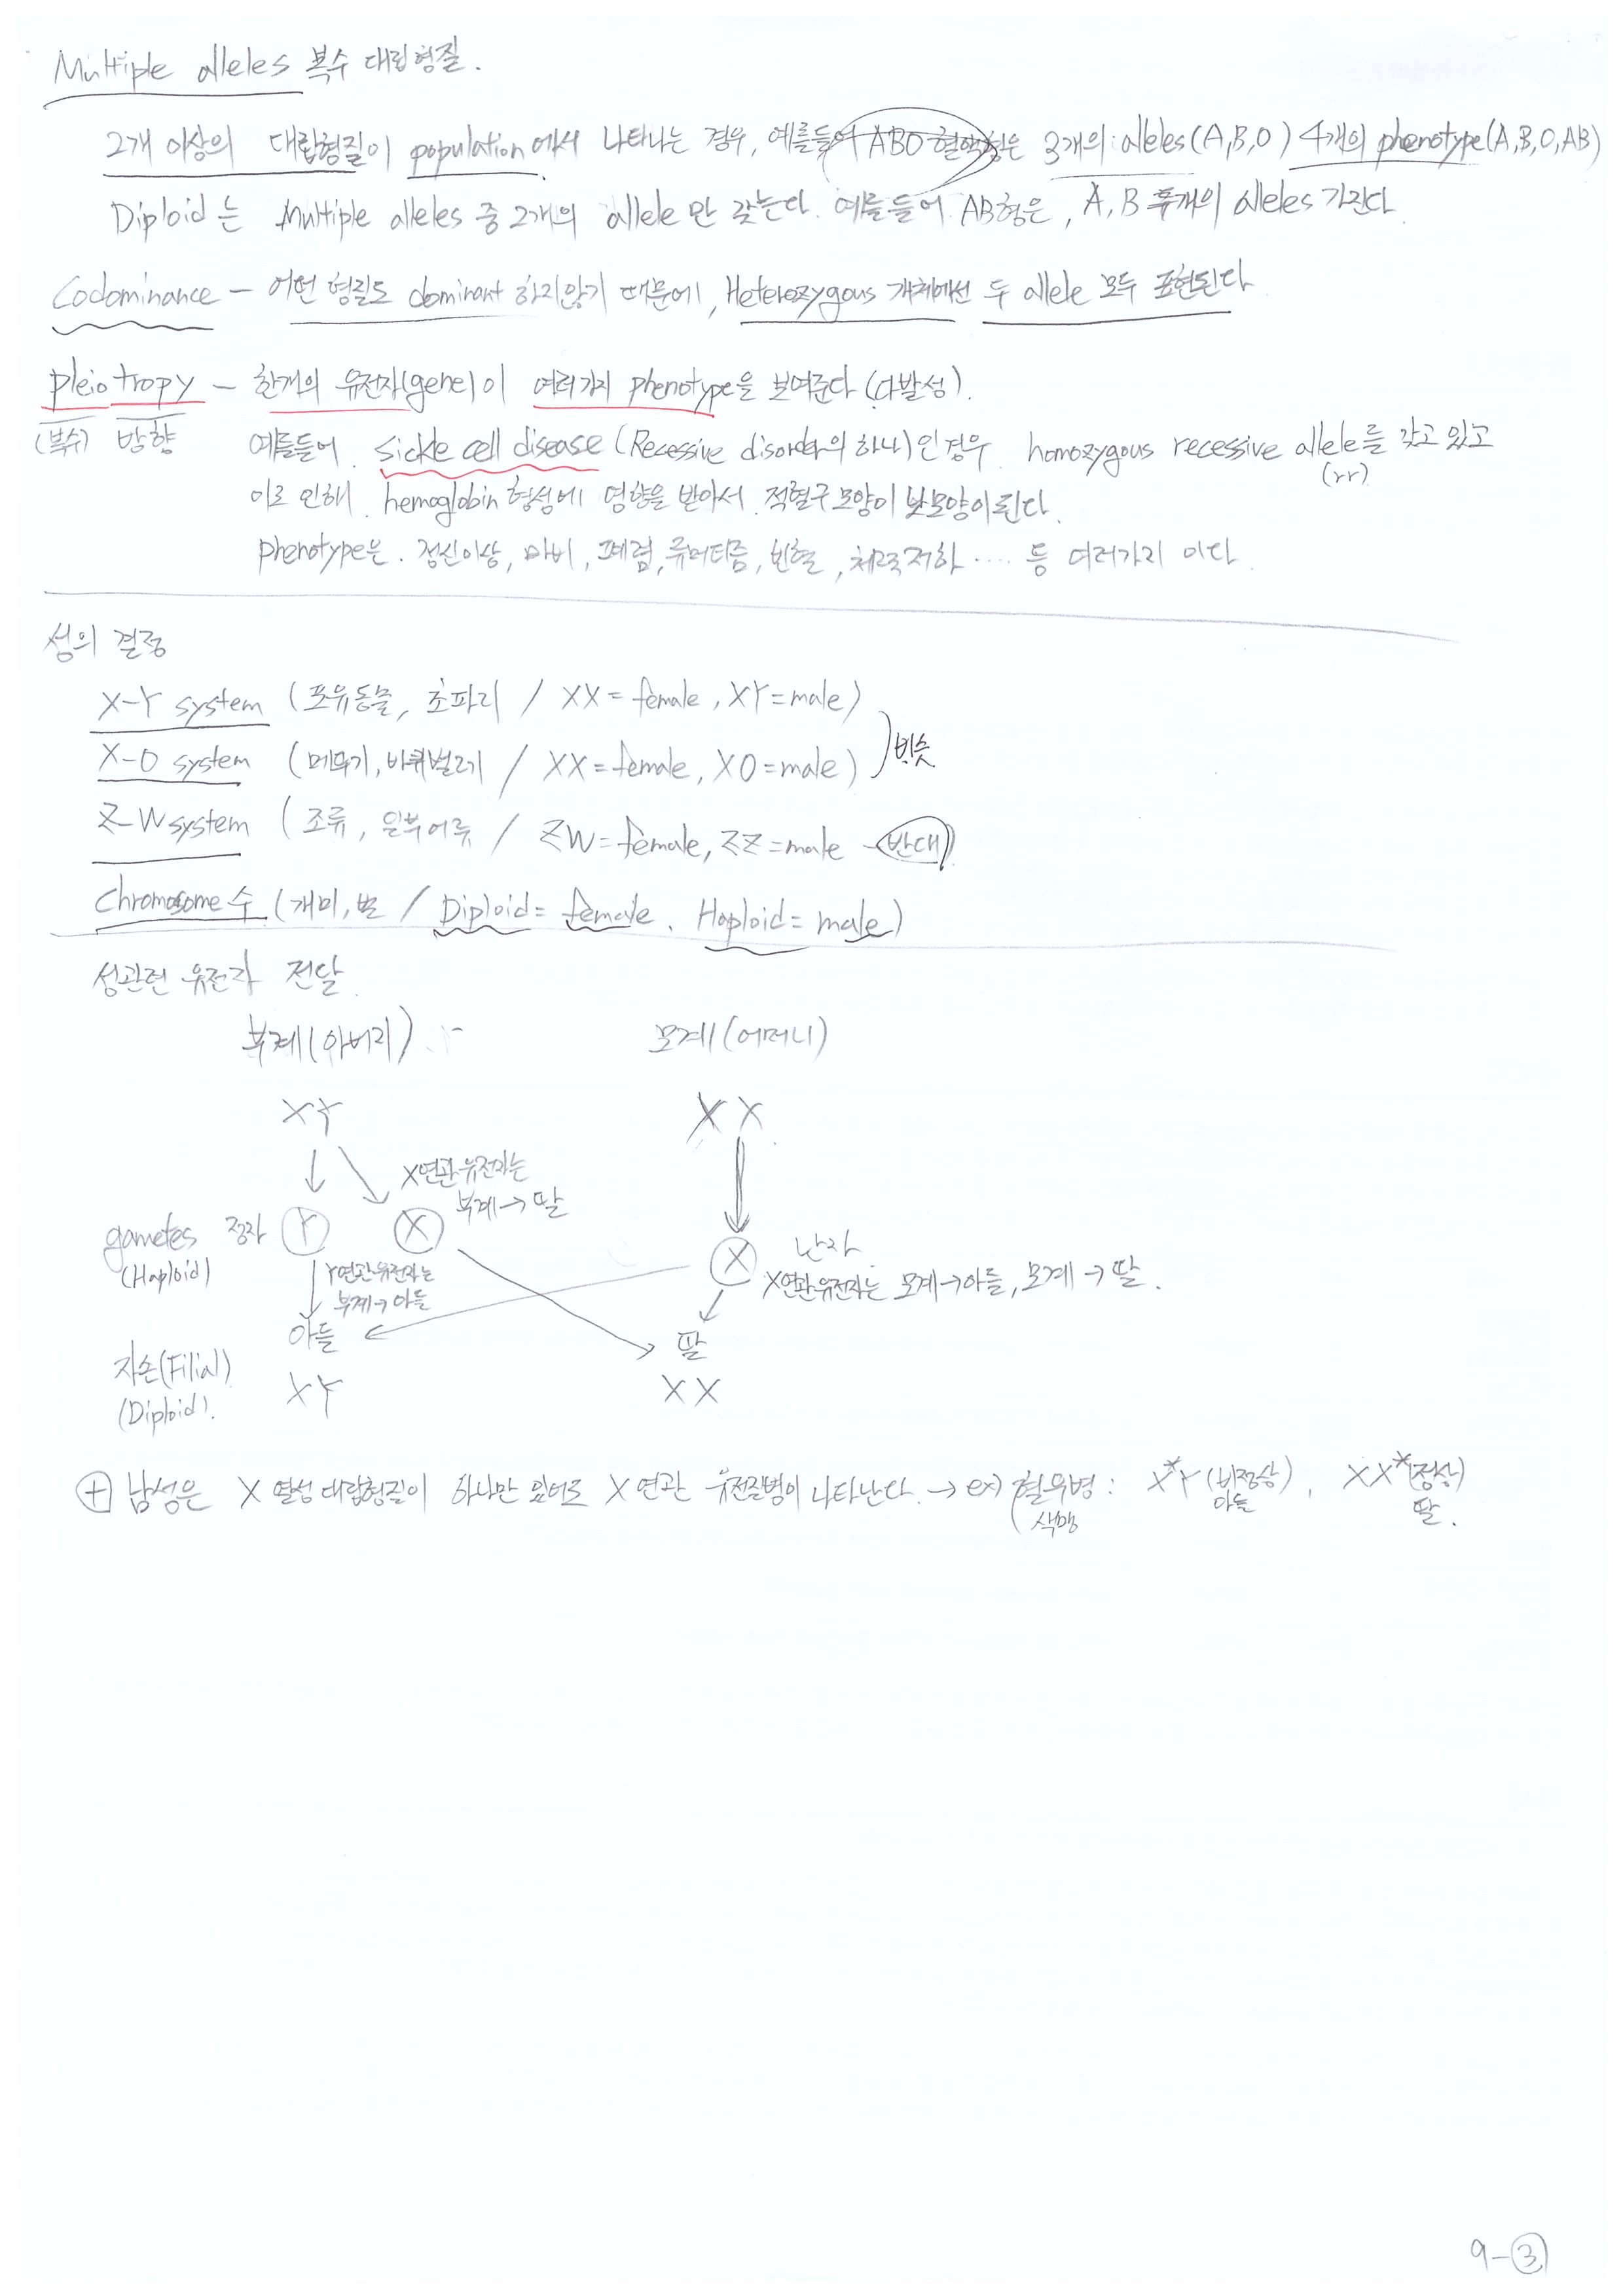 Multiple alleles 복수 대립형질.
2개 이상의 대립형질이 population에서 나타나는 경우, 예를들어 ABO 혈액형은 3개의 alleles (A,B,O) 4개의 phenotype(A,B,O,AB)
Diploid는 Multiple alleles 중 2개의 allele만 갖는다. 예를들어 AB형은, A,B 두개의 alleles 가진다.
Codominance - 어떤 형질도 dominant 하지않기 때문에, Heterozygous 개체에선 두 allele 모두 표현된다
pleiotropy - 한개의 유전자(gene)이 여러가지 phenotype을 보여준다 (다발성).
(복수) 방향
예를들어. sickle cell disease (Recessive disorder의 하나)인 경우. homozygous recessive allele를 갖고 있고
(rr)
이로 인해. hemoglobin 형성에 영향을 받아서 적혈구 모양이 낫모양이 된다.
phenotype은. 정신이상, 마비, 폐렴, 류머티즘, 빈혈, 체력저하 .... 등 여러가지 이다.
성의 결정
X-Y system (포유동물, 초파리 / XX = female, XY = male)
X-O system (메뚜기, 바퀴벌레 / XX = female, XO = male) 비슷
Z-W system (조류, 일부어류 / ZW = female, ZZ = male - 반대)
Chromosome 수 (개미, 벌 / Diploid = female. Haploid = male)
성관련 유전자 전달.
부계(아버지) 모계(어머니)
XY XX
X연관유전자는
부계→딸
gametes 정자 Y X X 난자
(Haploid)
Y연관유전자는
부계→아들
X연관유전자는 모계→아들, 모계→딸.
아들 딸
자손(Filial)
XY XX
(Diploid).
+ 남성은 X 열성 대립형질이 하나만 있어도 X 연관 유전질병이 나타난다. → ex) 혈우병 : X*Y (비정상), XX* (정상)
색맹 아들 딸.
9-③